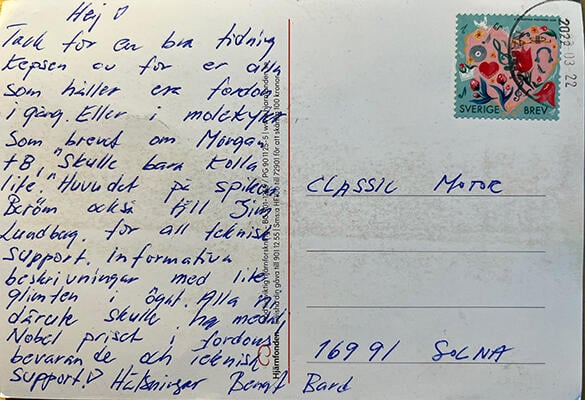 Hej ♡
Tack för en bra tidning
Kepsen av för er alla
som håller era fordon
i gång. Eller i molekyler
som brevet om Morgan
+8 "Skulle bara kolla
lite." Huvudet på spiken
Beröm också till Jim
Lundbag. för all teknisk
support. Informativa
beskrivningar med lite
glimten i ögat. Alla ni
därute skulle ha medalj
Nobel priset i fordons
bevarande och Teknisk
support ♡ Hälsningar Bengt Bard
SVERIGE BREV
2022 03 22
CLASSIC MOTOR
169 91 SOLNA
Hjärnfonden